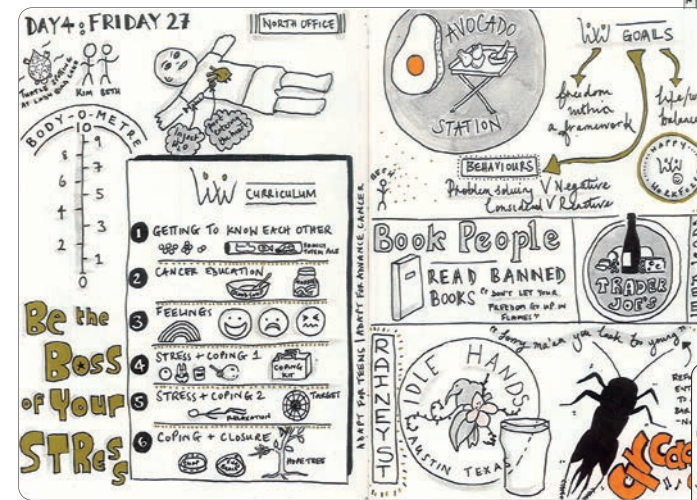 DAY 4: FRIDAY 27
NORTH OFFICE
TURTLE
AT
KIM BETH
BODY-O-METRE
10
9
8
7
6
5
4
3
2
1
0
CURRICULUM
1 GETTING TO KNOW EACH OTHER
2 CANCER EDUCATION
3 FEELINGS
4 STRESS + COPING 1
COPING KIT
5 STRESS + COPING 2
RELAXATION
TARGET
6 COPING + CLOSURE
HOPE TREE
Be the
Boss
of Your
STRESS
ADAPT FOR TEENS | ADAPT FOR ADVANCE CANCER
AVOCADO
STATION
GOALS
freedom
within
a framework
balance
HAPPY
BEHAVIOURS
Problem solving V Negative
Considered V Reactive
Book People
READ BANNED
BOOKS
"DON'T LET YOUR
FREEDOM GO UP IN
FLAMES"
TRADER
JOE'S
RAINEY ST
IDLE HANDS
AUSTIN TEXAS
"Sorry ma'am you look too young"